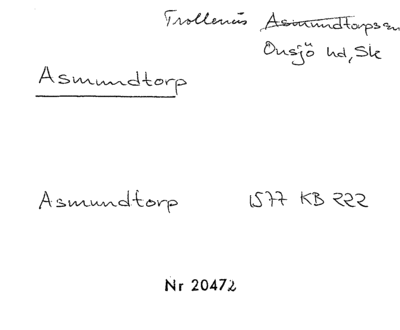 Trollenäs Asmundtorps sn
Önsjö hd, Sk
Asmundtorp
Asmundtorp 1577 KB 222
Nr 20472